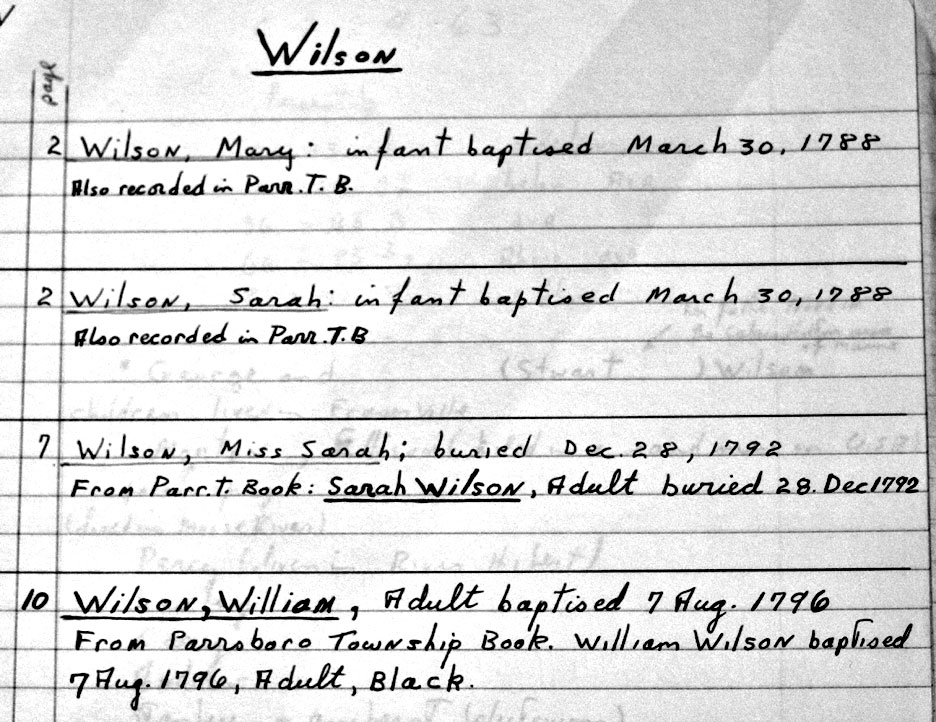 Wilson
page
2 Wilson, Mary: infant baptised March 30, 1788
Also recorded in Parr. T. B.
2 Wilson, Sarah: infant baptised March 30, 1788
Also recorded in Parr. T. B
7 Wilson, Miss Sarah; buried Dec. 28, 1792
From Parr. T. Book: Sarah Wilson, Adult buried 28. Dec 1792
10 Wilson, William, Adult baptised 7 Aug. 1796
From Parrsboro Township Book. William Wilson baptised
7 Aug. 1796, Adult, Black.